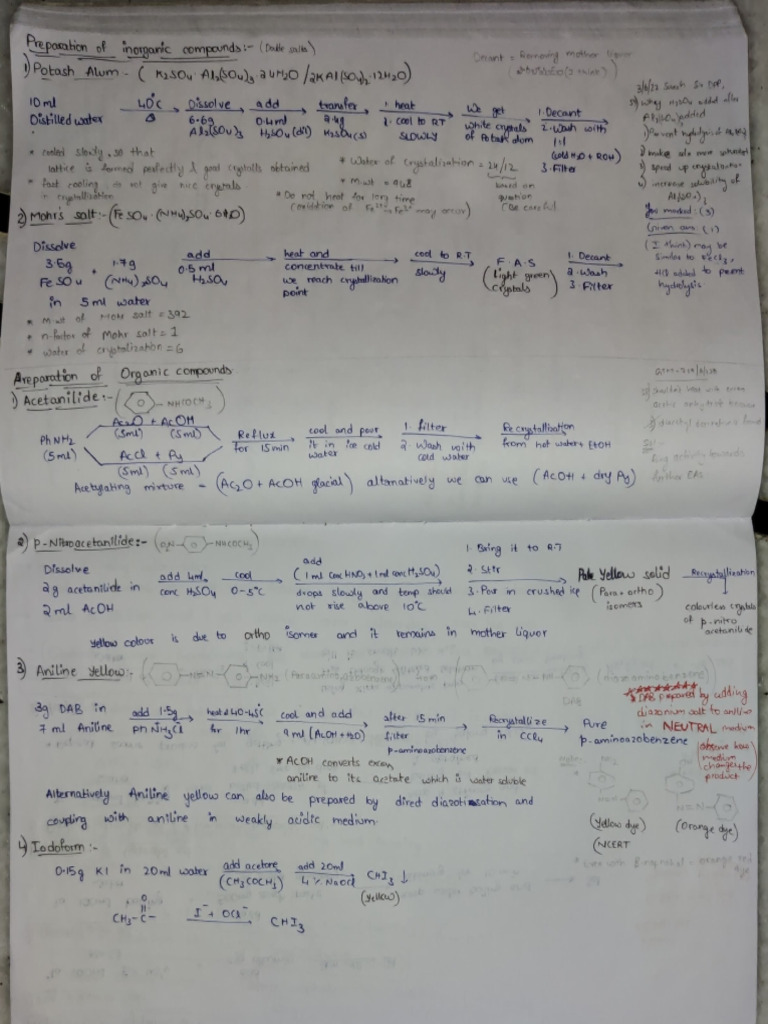 Preparation of inorganic compounds:- (Double salts)
Decant = Removing mother liquor
1) Potash Alum - ( K2SO4. Al2(SO4)3. 24H2O / 2KAl(SO4)2.12H2O)
10 ml Distilled water
40°C Δ
Dissolve 6.6g Al2(SO4)3
add 0.4ml H2SO4(dil)
transfer 2.4g K2SO4(s)
1. heat
2. cool to RT SLOWLY
We get white crystals of Potash alum
1. Decant
2. Wash with 1:1 (cold H2O + ROH)
3. Filter
* cooled slowly, so that lattice is formed perfectly & good crystalls obtained
* fast cooling → not give nice crystals
* Water of crystalisation = 24/12
based on question
(Be careful
* M.wt = 948
* Do not heat for long time
(oxidation of Fe2+ → Fe3+ may occur)
1) Prevent hydrolysis of
2) makes soln more saturated
3) speed up crystallisation
4) increase solubility of Al2(SO4)3
Given ans: (1)
(I think) may be similar to FeCl3, HCl added to prevent hydrolysis
2) Mohr's salt:- (FeSO4. (NH4)2SO4. 6H2O)
Dissolve
3.5g FeSO4 + 1.7g (NH4)2SO4
in 5ml water
add 0.5 ml H2SO4
heat and concentrate till we reach crystallization point
cool to R.T slowly
F.A.S (light green) crystals
1. Decant
2. Wash
3. Filter
* M.wt of Mohr salt = 392
* n-factor of Mohr salt = 1
* water of crystalization = 6
Preparation of Organic compounds
1) Acetanilide:- ( NHCOCH3)
PhNH2 (5ml)
Ac2O + AcOH
(5ml) (5ml)
AcCl + Py
(5ml) (5ml)
Reflux for 15min
cool and pour it in ice cold water
1. filter
2. Wash with cold water
Recrystallisation from hot water + EtOH
Acetylating mixture - (Ac2O + AcOH glacial) alternatively we can use (AcOH + dry Py)
2) P-Nitroacetanilide:- (O2N- -NHCOCH3)
Dissolve
2g acetanilide in 2ml AcOH
add 4ml conc H2SO4
cool 0-5°C
add
(1 ml conc HNO3 + 1 ml conc H2SO4)
drops slowly and temp should not rise above 10°C
1. Bring it to R.T
2. Stir
3. Pour in crushed ice
4. Filter
Pale Yellow solid
(Para + ortho) isomers
Recrystallization
colourless crystals of p-nitro acetanilide
Yellow colour is due to ortho isomer and it remains in mother liquor
3) Aniline Yellow:- ( N=N NH2
DAB
3g DAB in 7 ml Aniline
add 1.5g PhNH3Cl
heat @ 40-45°C for 1hr
cool and add 9 ml (AcOH + H2O)
after 15 min filter
p-aminoazobenzene
Recrystallize in CCl4
Pure p-aminoazobenzene
DAB prepared by adding diazonium salt to aniline in NEUTRAL medium
(observe how medium changes the product
* AcOH converts excess aniline to its acetate which is water soluble
Alternatively Aniline yellow can also be prepared by direct diazotisation and coupling with aniline in weakly acidic medium.
(Yellow dye)
(NCERT
(Orange dye)
4) Iodoform:-
0.15g KI in 20ml water
add acetone (CH3COCH3)
add 20ml 4% NaOCl
CHI3 ↓ (yellow)
CH3-C-
O
I- + OCl-
CHI3